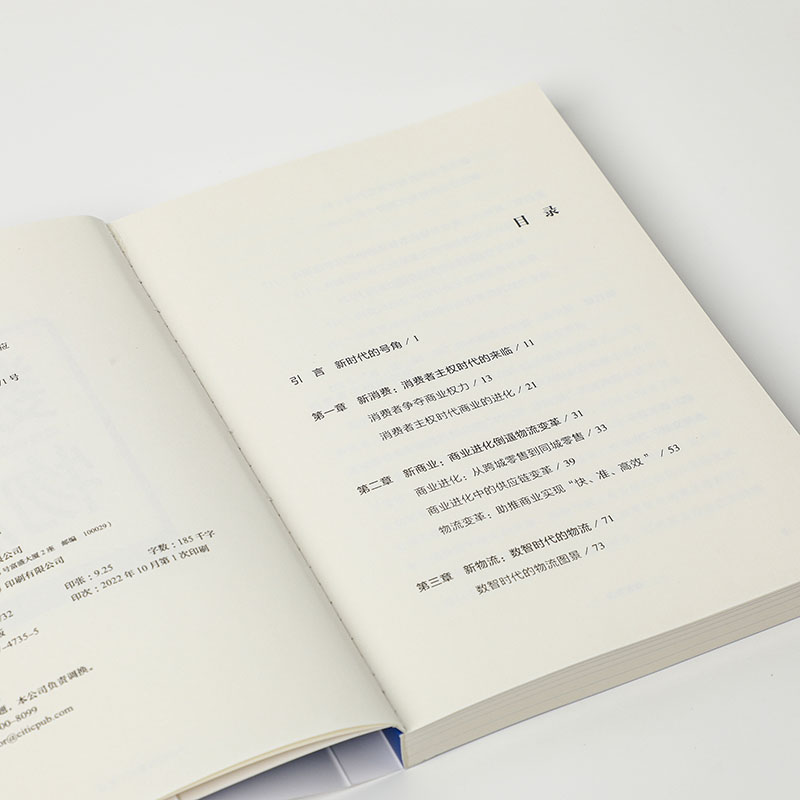 应
/1号
限公司
号富盛大厦2座 邮编 100029）
印刷有限公司
印张：9.25 字数：185千字
印次：2022年10月第1次印刷
/32
版
-4735-5
题，本公司负责调换。
00-8099
or@citicpub.com
目 录
引 言 新时代的号角 / 1
第一章 新消费：消费者主权时代的来临 / 11
消费者争夺商业权力 / 13
消费者主权时代商业的进化 / 21
第二章 新商业：商业进化倒逼物流变革 / 31
商业进化：从跨城零售到同城零售 / 33
商业进化中的供应链变革 / 39
物流变革：助推商业实现“快、准、高效” / 53
第三章 新物流：数智时代的物流 / 71
数智时代的物流图景 / 73